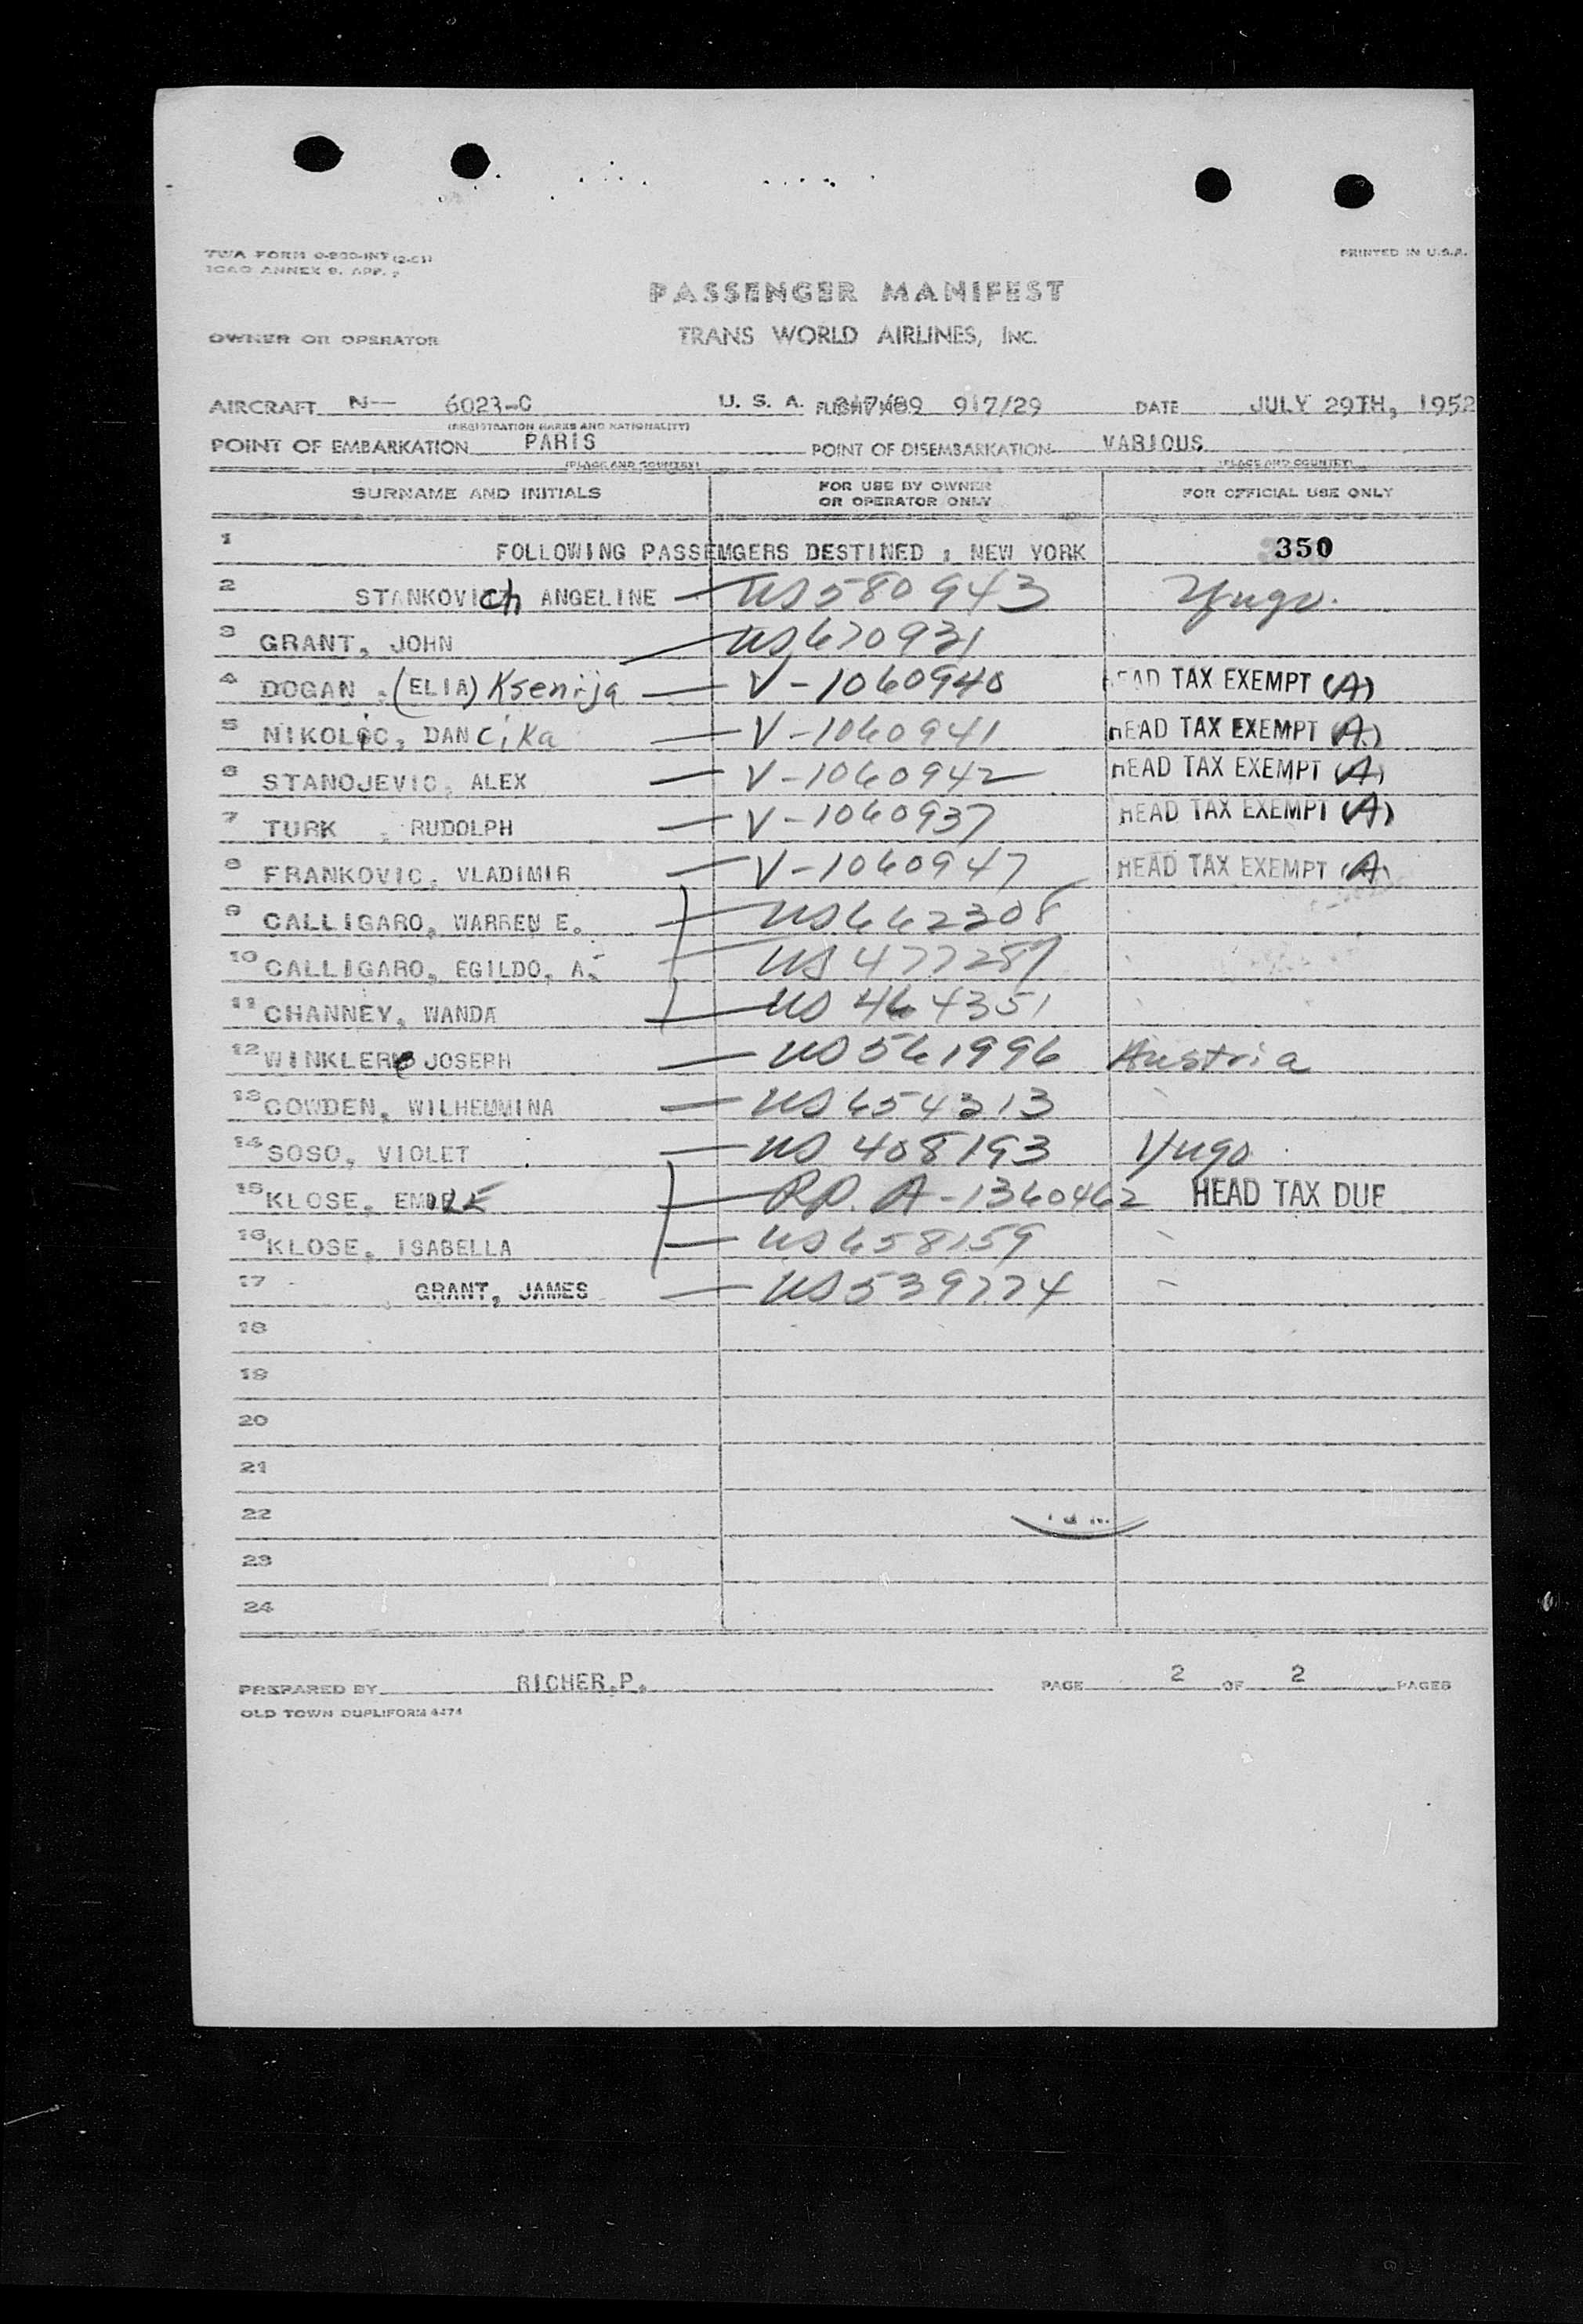 TWA FORM 0-800-INT (2-51)
ICAO ANNEX 9, APP.
PRINTED IN U.S.A.
PASSENGER MANIFEST
OWNER OR OPERATOR TRANS WORLD AIRLINES, INC.
AIRCRAFT N— 6023-C U. S. A. 917/29 DATE JULY 29TH, 1952
(REGISTRATION MARKS AND NATIONALITY)
POINT OF EMBARKATION PARIS POINT OF DISEMBARKATION VARIOUS
(PLACE AND COUNTRY) (PLACE AND COUNTRY)
SURNAME AND INITIALS FOR USE BY OWNER OR OPERATOR ONLY FOR OFFICIAL USE ONLY
1 FOLLOWING PASSEMGERS DESTINED : NEW YORK 350
2 STANKOVICh ANGELINE — US 580943 Yugo.
3 GRANT, JOHN — US 670931
4 DOGAN , (ELIA) Ksenija — V-1060940 HEAD TAX EXEMPT (A)
5 NIKOLIC, DANCiKa — V-1060941 HEAD TAX EXEMPT (A)
6 STANOJEVIC, ALEX — V-1060942 HEAD TAX EXEMPT (A)
7 TURK , RUDOLPH — V-1060937 HEAD TAX EXEMPT (A)
8 FRANKOVIC, VLADIMIR — V-1060947 HEAD TAX EXEMPT (A)
9 CALLIGARO, WARREN E. — US 662308
10 CALLIGARO, EGILDO, A. — US 477287
11 CHANNEY, WANDA — US 464351
12 WINKLER JOSEPH — US 561996 Austria
13 COWDEN, WILHEMMINA — US 654313
14 SOSO, VIOLET — US 408193 Yugo
15 KLOSE, EMILE — RP. A-1360462 HEAD TAX DUE
16 KLOSE, ISABELLA — US 658159
17 GRANT, JAMES — US 539774
18
19
20
21
22
23
24
PREPARED BY RICHER.P. PAGE 2 OF 2 PAGES
OLD TOWN DUPLIFORM 4474